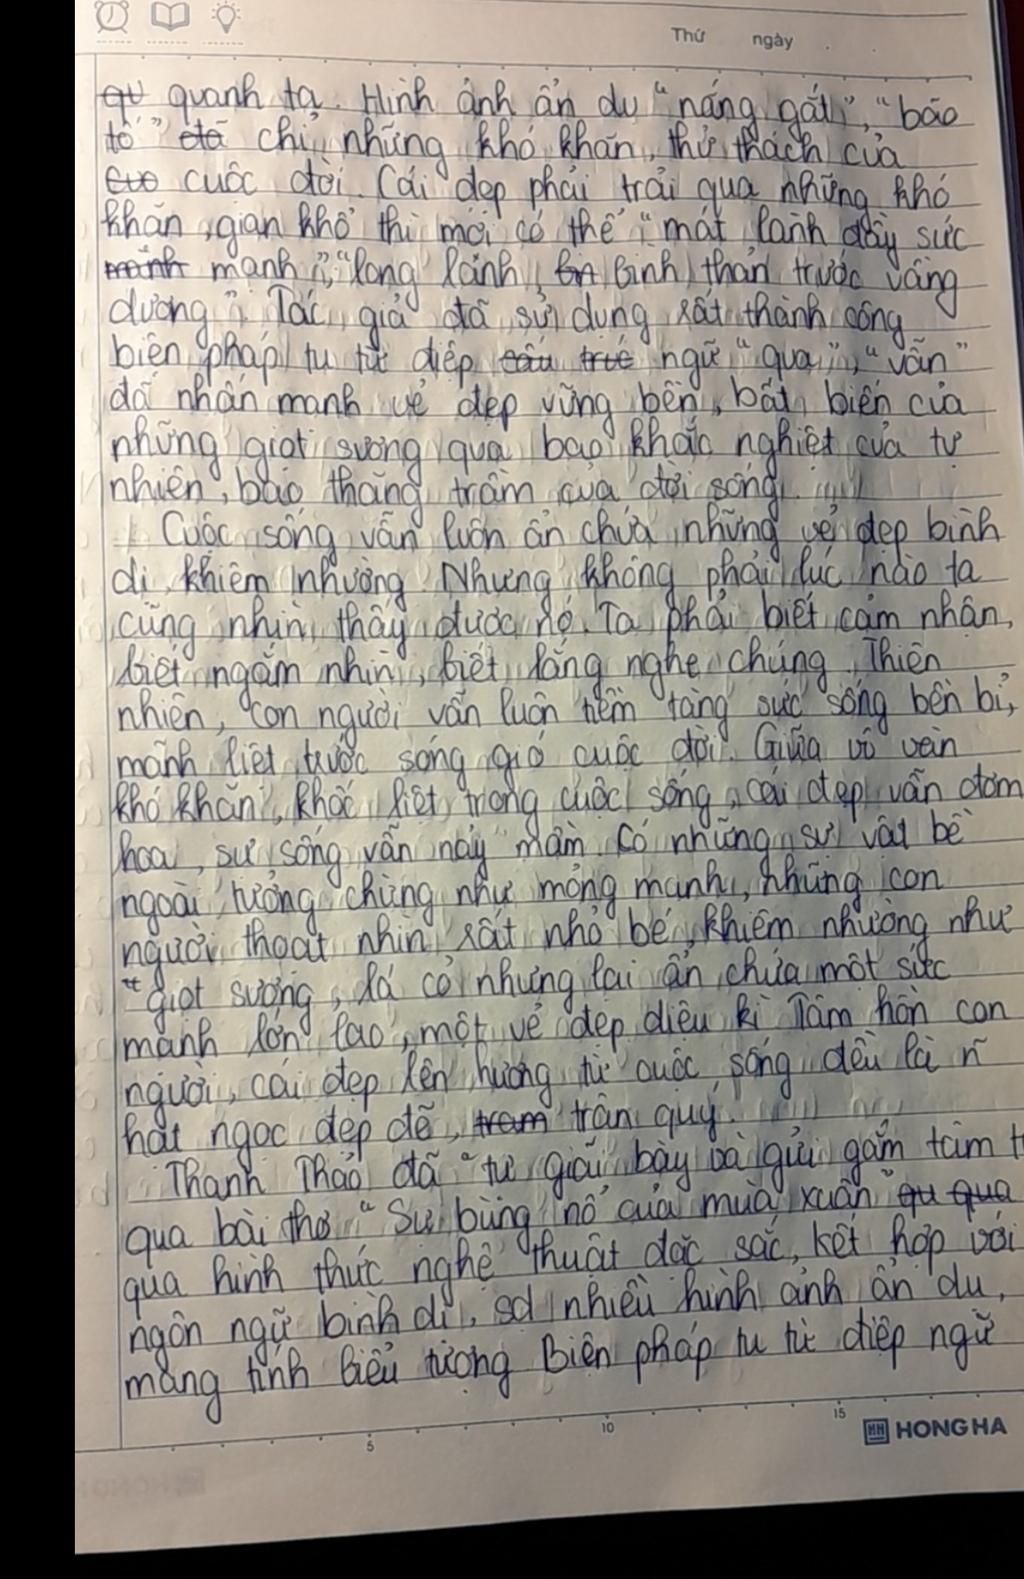 Thứ ngày
qu quanh ta. Hình ảnh ẩn dụ "nắng gắt", "bão
tố" đã chỉ những khó khăn, thử thách của
cuo cuộc đời. Cái đẹp phải trải qua những khó
khăn, gian khổ thì mới có thể "mát lành đầy sức
mành mạnh", "long lanh, bìn bình thản trước vầng
dương". Tác giả đã sử dụng rất thành công
biện pháp tu từ điệp cấu trúc ngữ "qua", "vẫn"
đã nhấn mạnh vẻ đẹp vững bền, bất biến của
những giọt sương qua bao khắc nghiệt của tự
nhiên, bao thăng trầm của đời sống.
Cuộc sống vẫn luôn ẩn chứa những vẻ đẹp bình
dị, khiêm nhường. Nhưng không phải lúc nào ta
cũng nhìn thấy được nó. Ta phải biết cảm nhận,
biết ngắm nhìn, biết lắng nghe chúng. Thiên
nhiên, con người vẫn luôn tiềm tàng sức sống bền bỉ,
mãnh liệt trước sóng gió cuộc đời. Giữa vô vàn
khó khăn, khốc liệt trong cuộc sống, cái đẹp vẫn đơm
hoa, sự sống vẫn nảy mầm. Có những sự vật bề
ngoài tưởng chừng như mỏng manh, những con
người thoạt nhìn rất nhỏ bé, khiêm nhường như
"giọt sương, lá cỏ nhưng lại ẩn chứa một sức
mạnh lớn lao, một vẻ đẹp diệu kì. Tâm hồn con
người, cái đẹp lên hương từ cuộc sống đều là n~
hạt ngọc đẹp đẽ, tram trân quý.
Thanh Thảo đã "tự giãi bày và gửi gắm tâm t
qua bài thơ "Sự bùng nổ của mùa xuân" qu qua
qua hình thức nghệ thuật đặc sắc, kết hợp với
ngôn ngữ bình dị, sd nhiều hình ảnh ẩn dụ,
mang tính biểu tượng. Biện pháp tu từ điệp ngữ
5 10 15
HONG HA